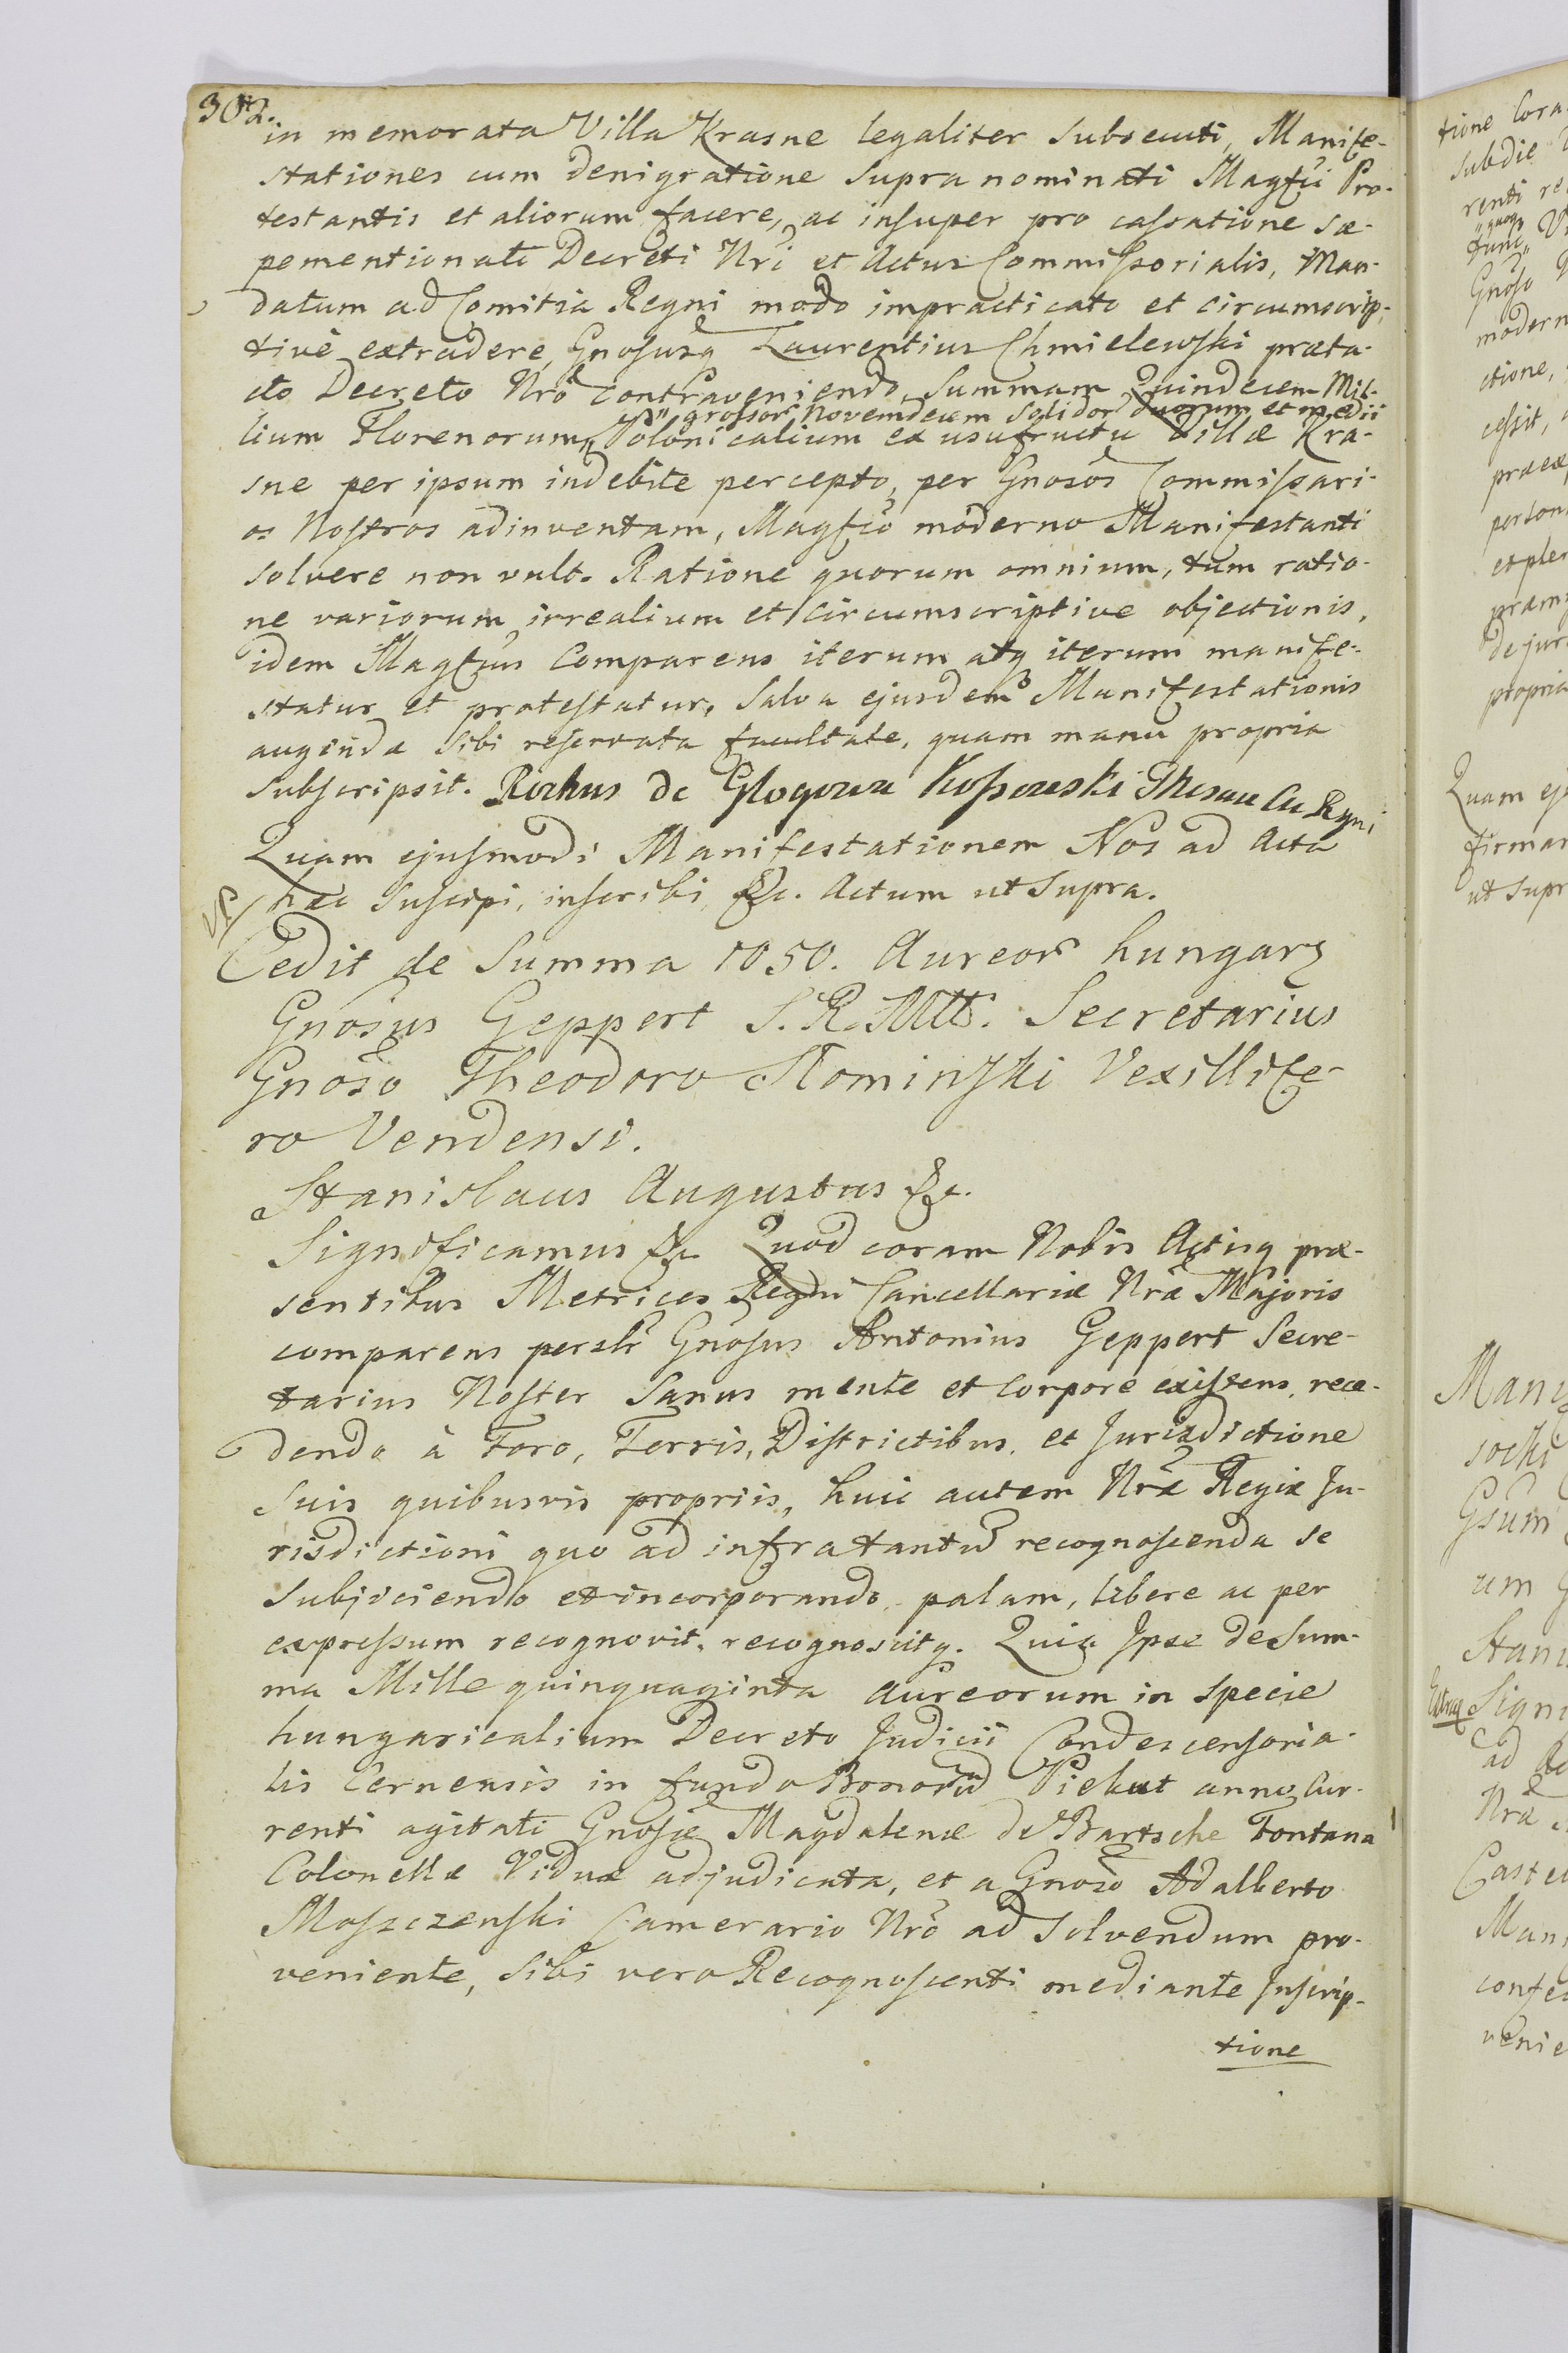 302.
in memorata Villa Krasne legaliter subsecuti, Manife-
stationes cum denigratione supra nominati Magfci Pro-
testantis et aliorum facere, ac insuper pro cassatione sæ-
pementionati Decreti Nri et Actus Commissorialis, Man-
datum ad Comitia Regni modo impracticato et circumscrip-
tivè extradere, Gnosusq Laurentius Chmielewski præta-
cto Decreto Nrô contraveniendo, Summam Quindecem Mil-
" grossor Novemdecem Solidor duorum et medii
lium Florenorum " Polonicalium ex usufructu Villæ Kra-
sne per ipsum indebite percepto, per Gnosos Commissari-
os Nostros adinventam, Magfco moderno Manifestanti
solvere non vult. Ratione quorum omnium, tum ratio-
ne variorum irrealium et circumscriptive objectionis,
idem Magfcus Comparens iterum atq iterum manife-
statur et protestatur, Salva ejusdem Manifestationis
augendæ sibi reservata facultate, quam manu propria
subscripsit. Rochus de Glogowa Kossowski Thesau Cu Regni
Quam ejusmodi Manifestationem Nos ad Acta
hæc suscipi, inscribi &c. Actum ut supra.
Cedit de Summa 1050. Aureor hungar
Gnosus Geppert S. R. Mtt. Secretarius
Gnoso Theodoro Słominski Vexillife-
ro Vendensi.
Stanislaus Augustus &c.
Significamus &c. Quod coram Nobis Actisq præ-
sentibus Metrices Regni Cancellariæ Nræ Majoris
comparens persлr Gnosus Antonius Geppert Secre-
tarius Noster Sanus mente et corpore existens, rece-
dendo à Foro, Terris, Districtibus, et Jurisdictione
suis quibusvis propriis, huic autem Nræ Regiæ Ju-
risdictioni quo ad infra tantum recognoscenda se
subjiciendo et incorporando, palam, libere ac per
expressum recognovit, recognoscitq. Quia Ipse de Sum-
ma Mille quinquaginta Aureorum in specie
hungaricalium Decreto Judicii Condescensoria-
lis Cernensis in fundo Bonorum Piekut anno Cur-
renti agitati Gnosæ Magdalenæ de Bartsche Fontana
Colonellæ Viduæ adjudicata, et a Gnoso Adalberto
Moszczenski Camerario Nrô ad solvendum pro-
veniente, sibi vero Recognoscenti mediante Inscrip-
tione